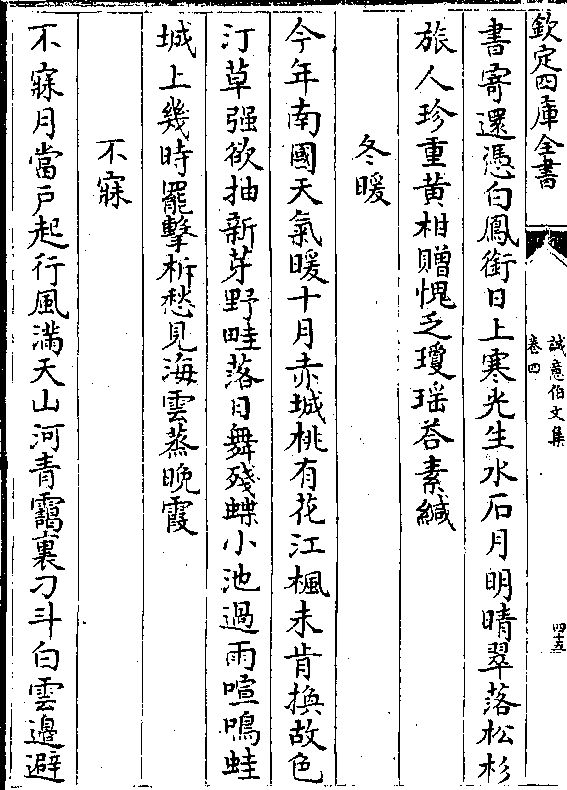 欽定四庫全書
誠意伯文集
卷四
四十五
書寄還憑白鳳銜日上寒光生水石月明晴翠落松杉
旅人珍重黃柑贈愧乏瓊瑶荅素緘
冬暖
今年南國天氣暖十月赤城桃有花江楓未肯換故色
汀草强欲抽新芽野畦落日舞殘蝶小池過雨喧鳴蛙
城上幾時罷擊柝愁見海雲蒸晚霞
不寐
不寐月當戶起行風滿天山河青靄裏刁斗白雲邊避